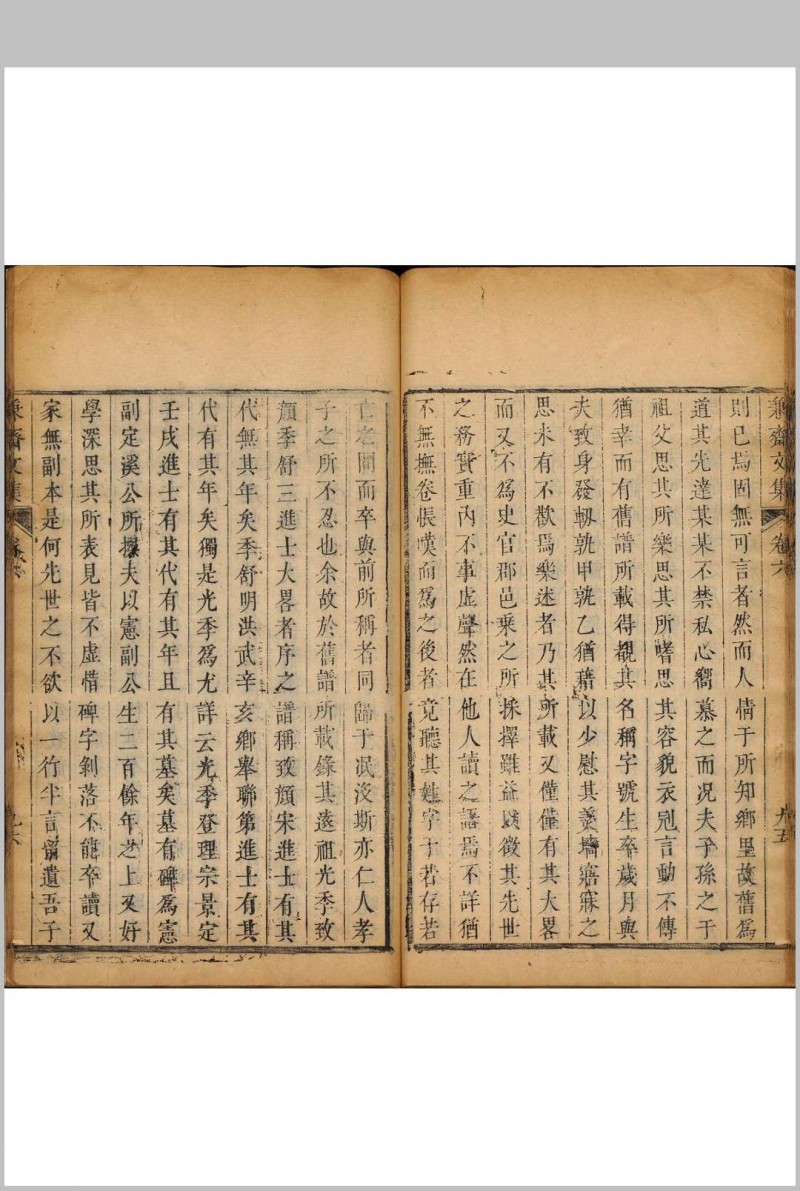 兼齋文集
卷六
九五
則已焉固無可言者然而人情于所知鄉里故舊爲
道其先達某某不禁私心嚮慕之而况夫子孫之于
祖父思其所樂思其所嗜思其容貌衣冠言動不傳
猶幸而有舊譜所載得覩其名稱字號生卒歲月與
夫致身發軔孰甲孰乙猶藉以少慰其羹墻寤寐之
思未有不歡焉樂述者乃其所載又僅僅有其大畧
而又不爲史官郡邑乗之所採擇雖益以徵其先世
之務實重內不事虛聲然在他人讀之語焉不詳猶
不無撫卷悵嘆而爲之後者竟聽其姓字于若存若
亡之間而卒與前所稱者同歸于泯沒斯亦仁人孝
子之所不忍也余故於舊譜所載錄其遠祖光季致
顔季舒三進士大畧者序之譜稱致顔宋進士有其
代無其年矣季舒明洪武辛亥鄉舉聯第進士有其
代有其年矣獨是光季爲尤詳云光季登理宗景定
壬戌進士有其代有其年且有其墓矣墓有碑爲憲
副定溪公所撰夫以憲副公生二百餘年之上又好
學深思其所表見皆不虛惜碑字剝落不能卒讀又
家無副本是何先世之不欲以一行半言留遺吾子
兼齋文集
卷六
九六